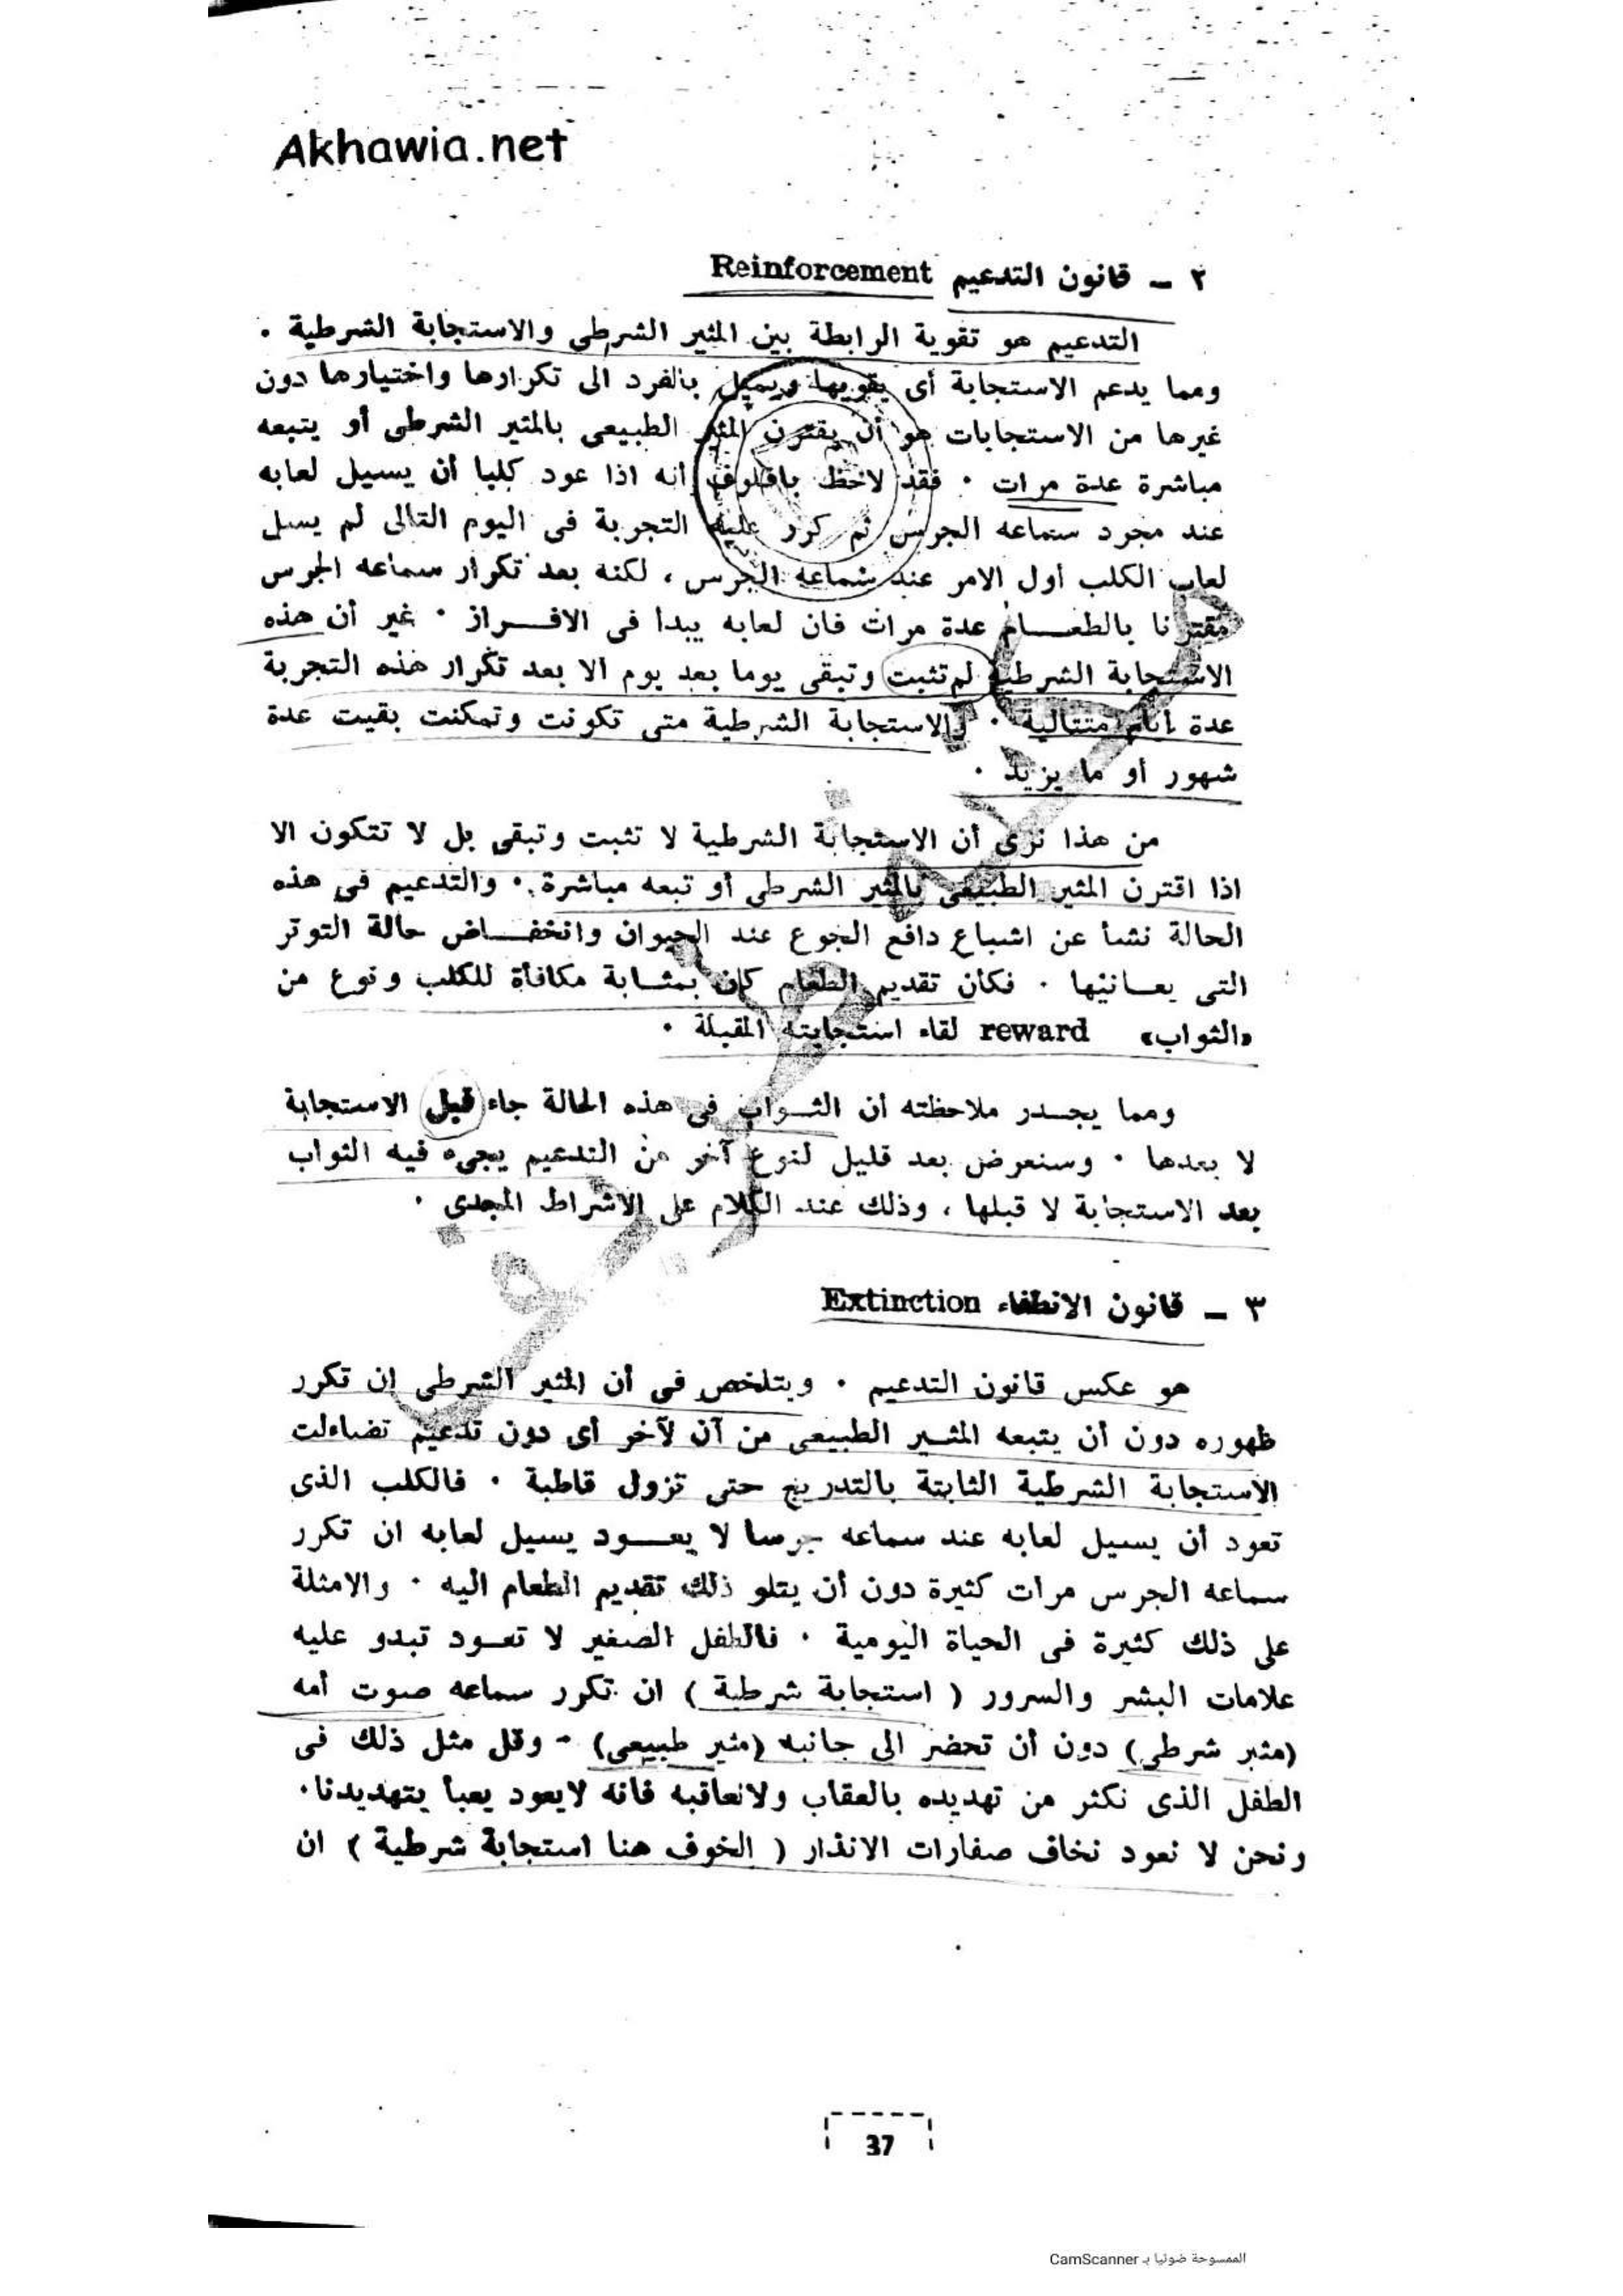 Akhawia.net
٢ - قانون التدعيم Reinforcement
التدعيم هو تقوية الرابطة بين المثير الشرطى والاستجابة الشرطية .
ومما يدعم الاستجابة أى يقويها ويميل بالفرد الى تكرارها واختيارها دون
غيرها من الاستجابات هو أن يقترن المثير الطبيعى بالمثير الشرطى أو يتبعه
مباشرة عدة مرات . فقد لاحظ بافلوف أنه اذا عود كلبا أن يسيل لعابه
عند مجرد سماعه الجرس ثم كرر عليه التجربة فى اليوم التالى لم يسل
لعاب الكلب أول الامر عند سماعه الجرس ، لكنه بعد تكرار سماعه الجرس
مقترنا بالطعــام عدة مرات فان لعابه يبدا فى الافــراز . غير أن هذه
الاستجابة الشرطية لم تثبت وتبقى يوما بعد يوم الا بعد تكرار هذه التجربة
عدة أيام متتالية . والاستجابة الشرطية متى تكونت وتمكنت بقيت عدة
شهور أو ما يزيد .
من هذا نرى أن الاستجابة الشرطية لا تثبت وتبقى بل لا تتكون الا
اذا اقترن المثير الطبيعى بالمثير الشرطى أو تبعه مباشرة . والتدعيم فى هذه
الحالة نشأ عن اشباع دافع الجوع عند الحيوان وانخفــاض حالة التوتر
التى يعــانيها . فكأن تقديم الطعام كان بمثــابة مكافأة للكلب ونوع من
«الثواب» reward لقاء استجابته المقبلة .
ومما يجــدر ملاحظته أن الثــواب فى هذه الحالة جاء قبل الاستجابة
لا بعدها . وسنعرض بعد قليل لنوع آخر من التدعيم يجىء فيه الثواب
بعد الاستجابة لا قبلها ، وذلك عند الكلام على الاشراط المجدى .
٣ - قانون الانطفاء Extinction
هو عكس قانون التدعيم . ويتلخص فى أن المثير الشرطى ان تكرر
ظهوره دون أن يتبعه المثــير الطبيعى من آن لآخر أى دون تدعيم تضاءلت
الاستجابة الشرطية الثابتة بالتدريج حتى تزول قاطبة . فالكلب الذى
تعود أن يسيل لعابه عند سماعه جرسا لا يعــود يسيل لعابه ان تكرر
سماعه الجرس مرات كثيرة دون أن يتلو ذلك تقديم الطعام اليه . والامثلة
على ذلك كثيرة فى الحياة اليومية . فالطفل الصغير لا تعــود تبدو عليه
علامات البشر والسرور ( استجابة شرطية ) ان تكرر سماعه صوت أمه
(مثير شرطى) دون أن تحضر الى جانبه (مثير طبيعى) - وقل مثل ذلك فى
الطفل الذى نكثر من تهديده بالعقاب ولانعاقبه فانه لايعود يعبأ بتهديدنا .
ونحن لا نعود نخاف صفارات الانذار ( الخوف هنا استجابة شرطية ) ان
37
الممسوحة ضوئيا بـ CamScanner